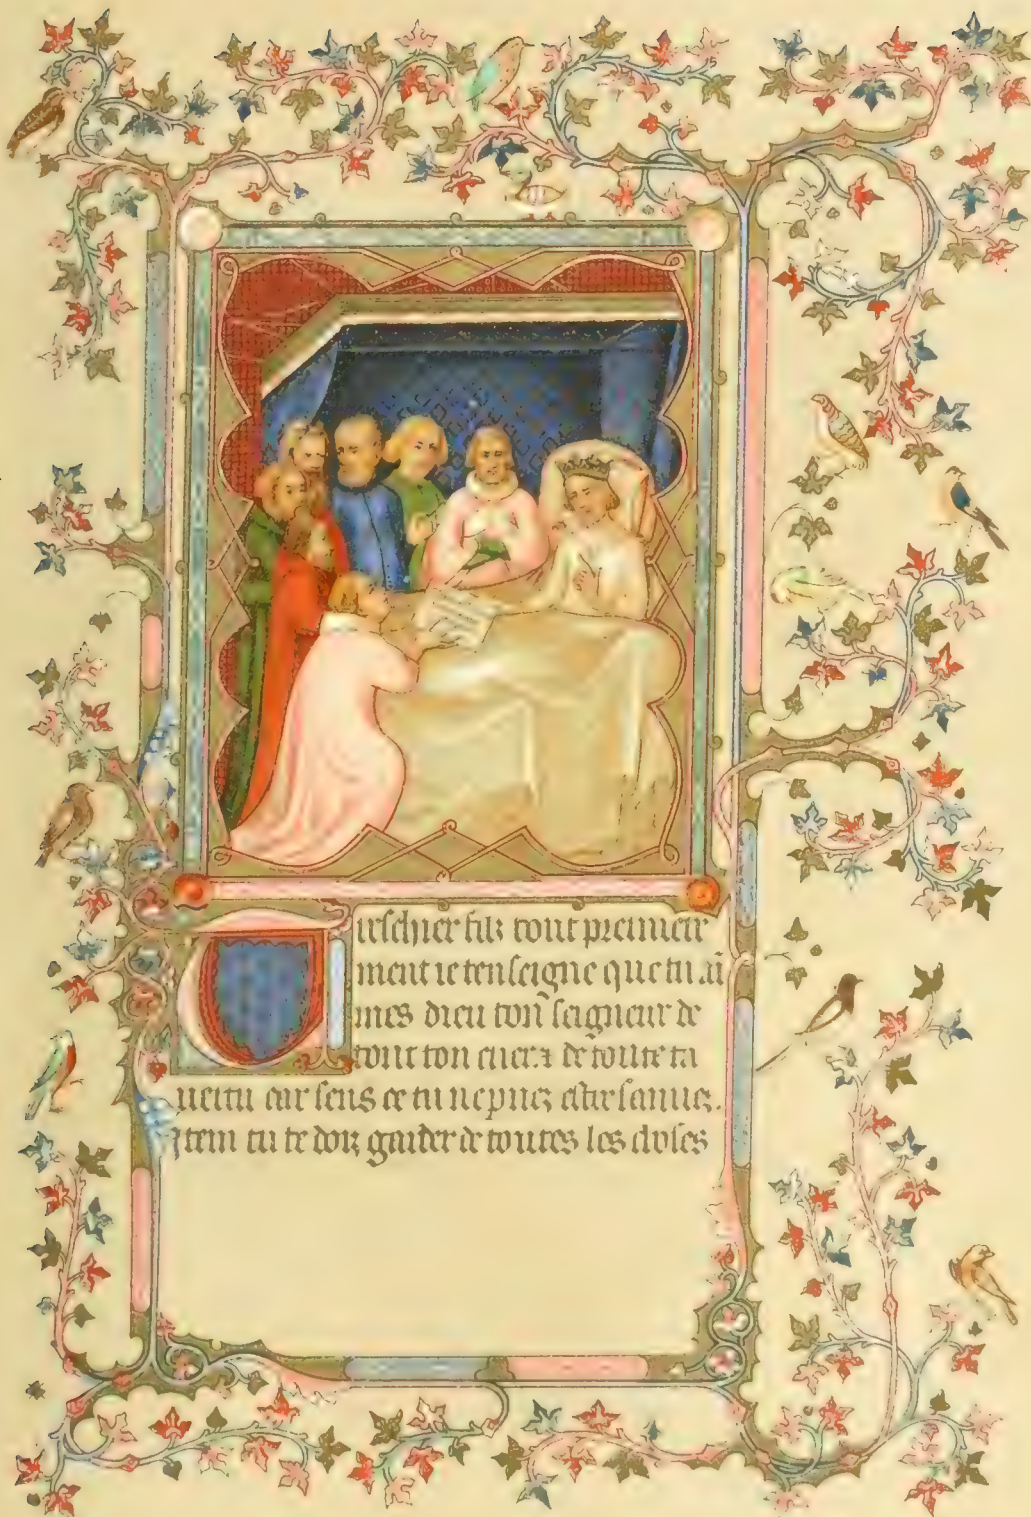 Treschier filz tout premier
ment ie tenseigne que tu ai
mes dieu ton seigneur de
tout ton cuer. ⁊ de toute ta
uertu car sens ce tu ne puez estre sauuez.
Item tu te doiz garder de toutes les choses